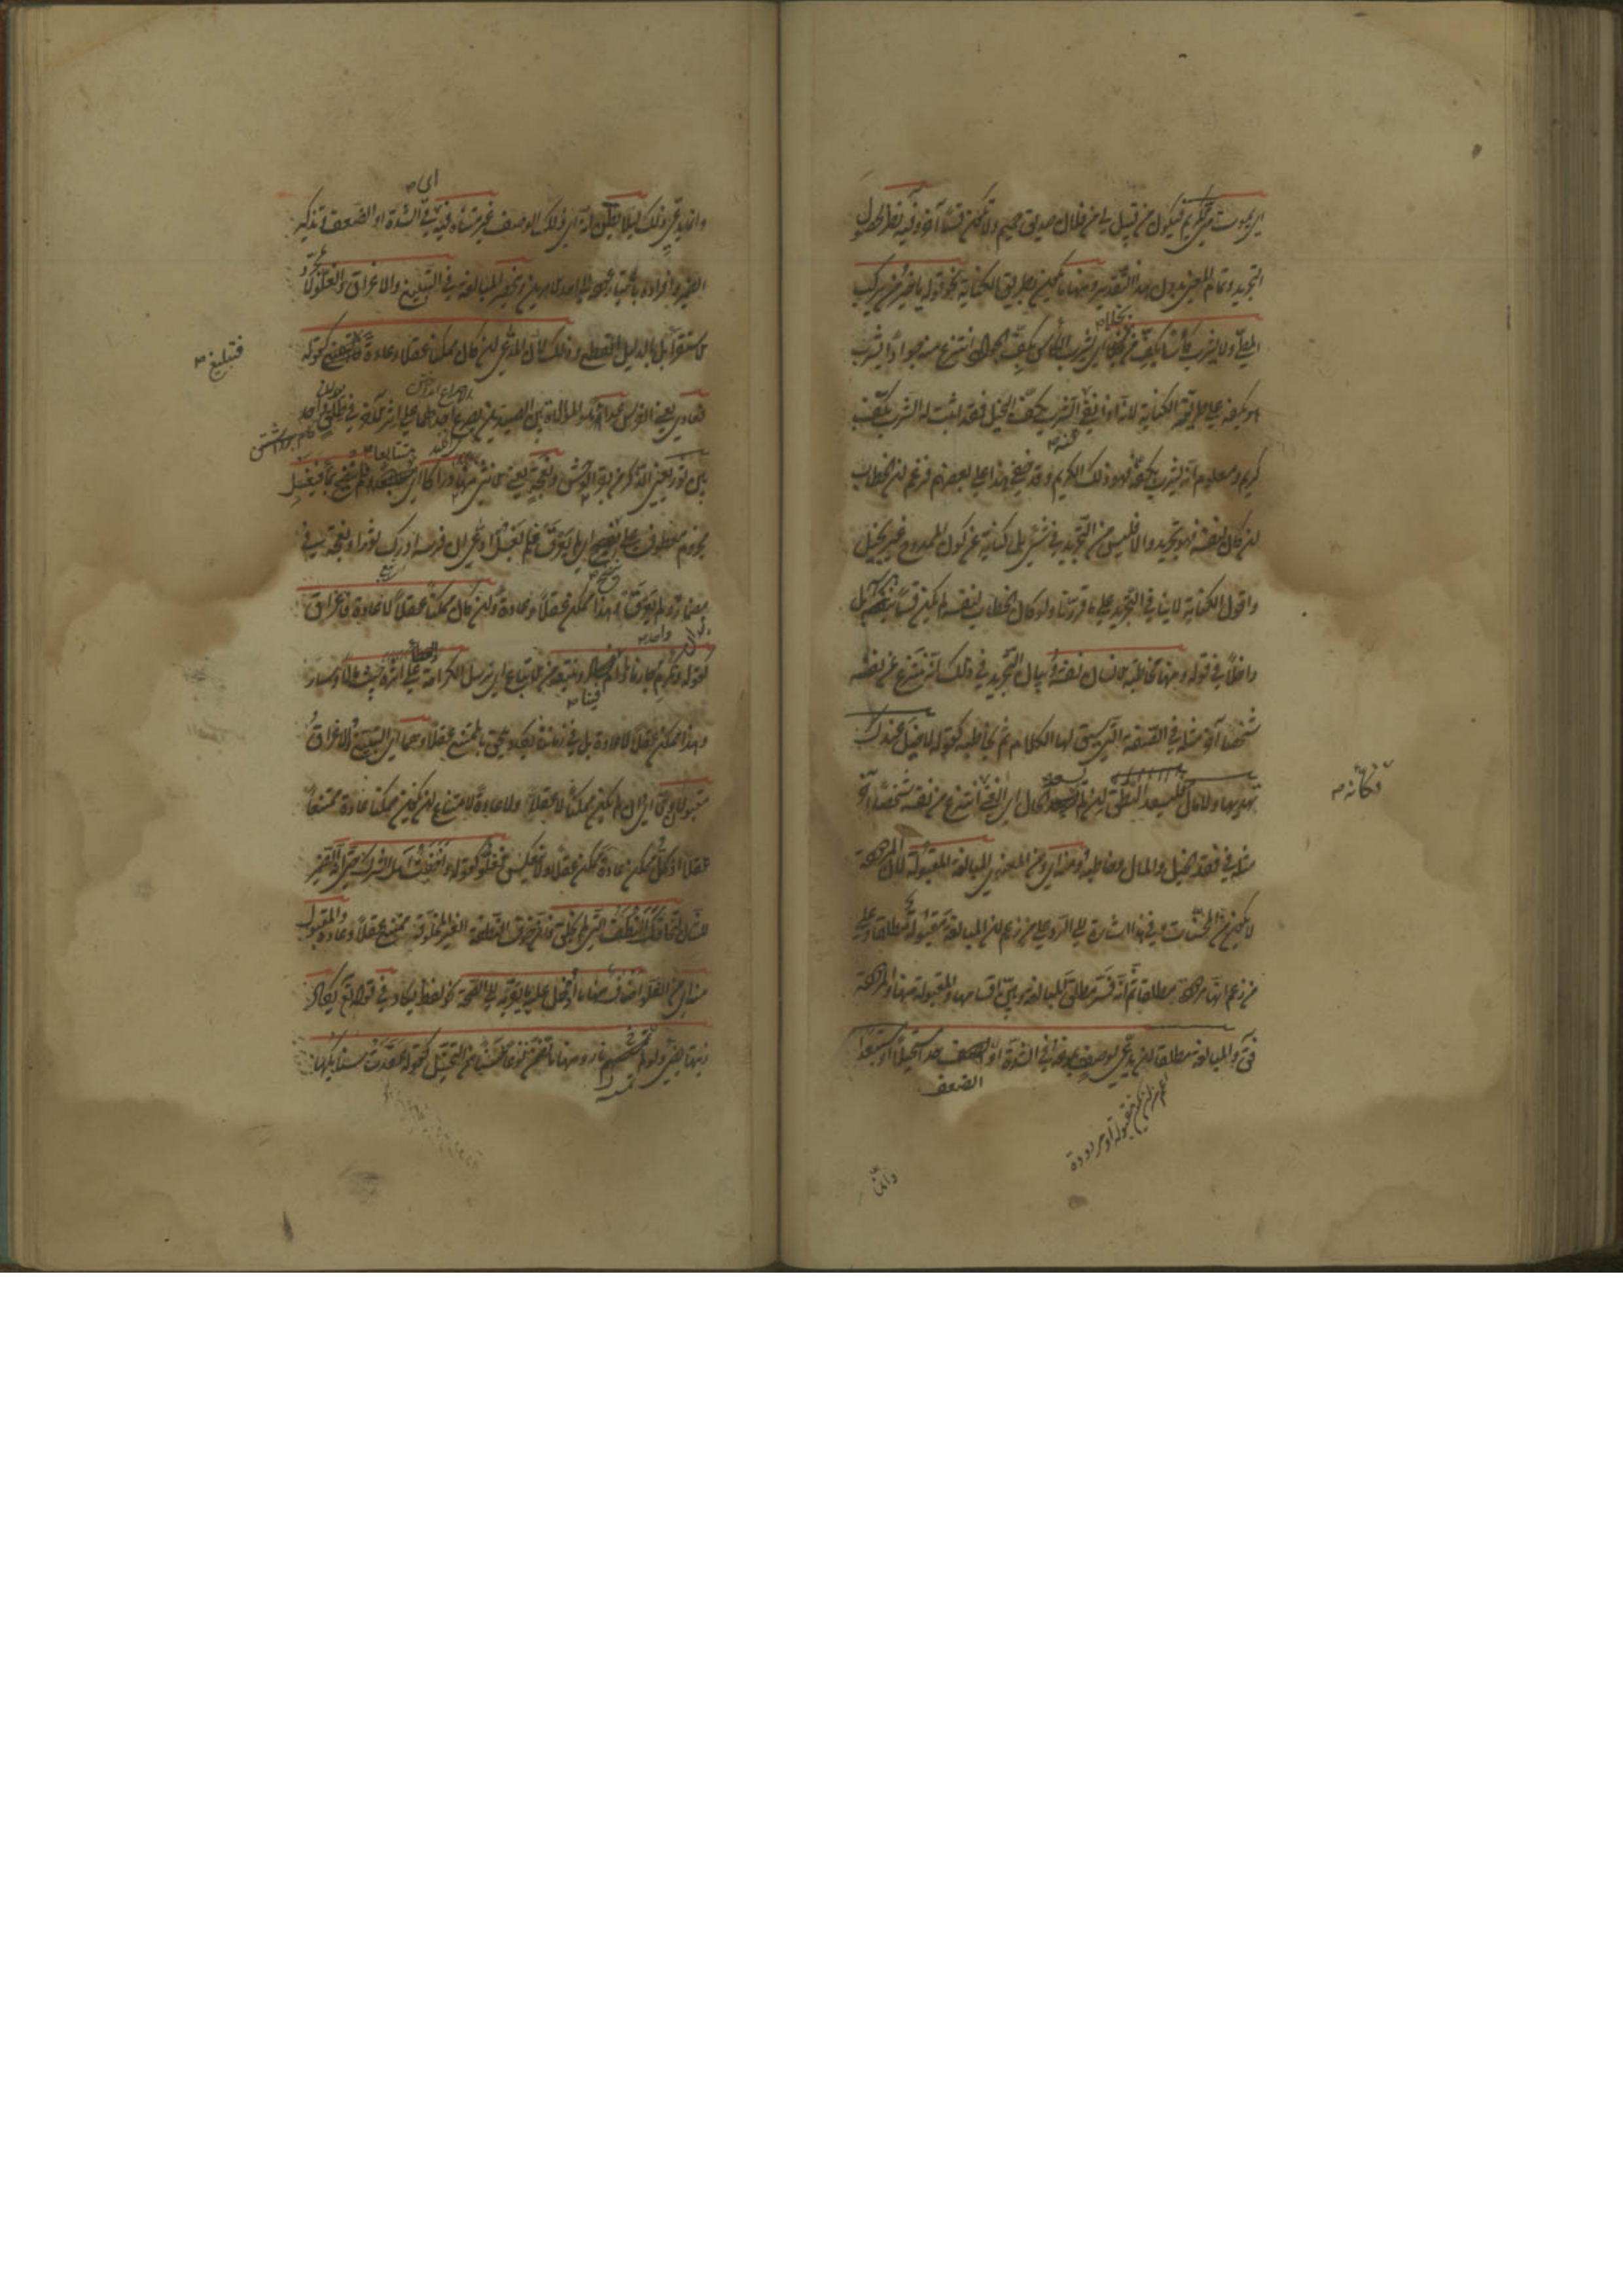 اى يموت منى كريم فيكون من قبيل لى من فلان صديق حميم ولا يكون قسما آخر وفيه نظر لحصول
التجريد وتمام المعنى بدون هذا التقدير ومنها ما يكون بطريق الكناية نحو قوله يا خير من يركب
المطى ولا يشرب كأسا بكف من بخلا اى يشرب الكأس بكف الجواد انتزع منه جوادا يشرب
هو بكفه على طريقة الكناية لانه اذا نفى عنه الشرب بكف البخيل فقد اثبت له الشرب بكف
كريم ومعلوم انه يشرب بكفه فهو ذلك الكريم وقد خفى هذا على بعضهم فزعم ان الخطاب
ان كان لنفسه فهو تجريد والا فليس من التجريد فى شئ بل كناية عن كون الممدوح غير بخيل
واقول الكناية لا ينافى التجريد على ما قررنا ولو كان الخطاب لنفسه لم يكن قسما بنفسه بل
داخلا فى قوله ومنها مخاطبة الانسان نفسه وبيان التجريد فى ذلك انه ينتزع من نفسه
شخصا آخر مثله فى الصفة التى سيق لها الكلام ثم يخاطبه كقوله لا خيل عندك
تهديها ولا مال فليسعد النطق ان لم يسعد الحال اى الغنى فكأنه انتزع من نفسه شخصا آخر
مثله فى فقد الخيل والمال وخاطبه ومنه اى ومن المعنوى المبالغة المقبولة لان المردودة
لا يكون من المحسنات وفى هذا اشارة الى الرد على من زعم ان المبالغة مقبولة مطلقا وعلى
من زعم انها مردودة مطلقا ثم انه فسر مطلق المبالغة وبين اقسامها والمقبولة منها والمردودة
فقال والمبالغة مطلقا ان يدعى لوصف بلوغه فى الشدة او الضعف حدا مستحيلا او مستبعدا
اعم من ان يكون مقبولة او مردودة
وانما
وانما يدعى ذلك لئلا يظن انه اى ذلك الوصف غير متناه فيه اى فى الشدة او الضعف وتذكير
الضمير وافراده باعتبار عوده الى احد الامرين وتنحصر المبالغة فى التبليغ والاغراق والغلو لا
بمجرد الاستقراء بل بالدليل القطعى وذلك لان المدعى ان كان ممكنا عقلا وعادة فتبليغ كقوله
فعادى يعنى الفرس عداء هو الموالاة بين الصيدين يصرع احدهما على اثر الآخر فى طلق واحد
بين ثور يعنى الذكر من بقر الوحش ونعجة يعنى الانثى منها دراكا اى متتابعا فلم ينضح بماء فيغسل
مجزوم معطوف على ينضح اى لم يعرق فلم يغسل ادعى ان فرسه ادرك ثورا ونعجة فى
مضمار واحد ولم يعرق وهذا ممكن عقلا وعادة وان كان ممكنا عقلا لا عادة فاغراق
كقوله ونكرم جارنا ما دام فينا ونتبعه من الاتباع اى نرسل الكرامة على اثره حيث مالا وسار
وهذا ممكن عقلا لا عادة بل فى زماننا يكاد يلحق بالممتنع عقلا وهما اى التبليغ والاغراق
مقبولان والا اى وان لم يكن ممكنا لا عقلا ولا عادة لامتناع ان يكون ممكنا عادة ممتنعا
عقلا اذ كل ممكن عادة ممكن عقلا ولا ينعكس فغلو كقوله واخفت اهل الشرك حتى انه الضمير
للشان لتخافك النطف التى لم تخلق فان خوف النطفة الغير المخلوقة ممتنع عقلا وعادة والمقبول
منه اى من الغلو اصناف منها ما ادخل عليه ما يقربه الى الصحة نحو لفظ يكاد فى قوله تع يكاد
زيتها يضئ ولو لم تمسسه نار ومنها ما تضمن نوعا حسنا من التخييل كقوله عقدت سنابكها